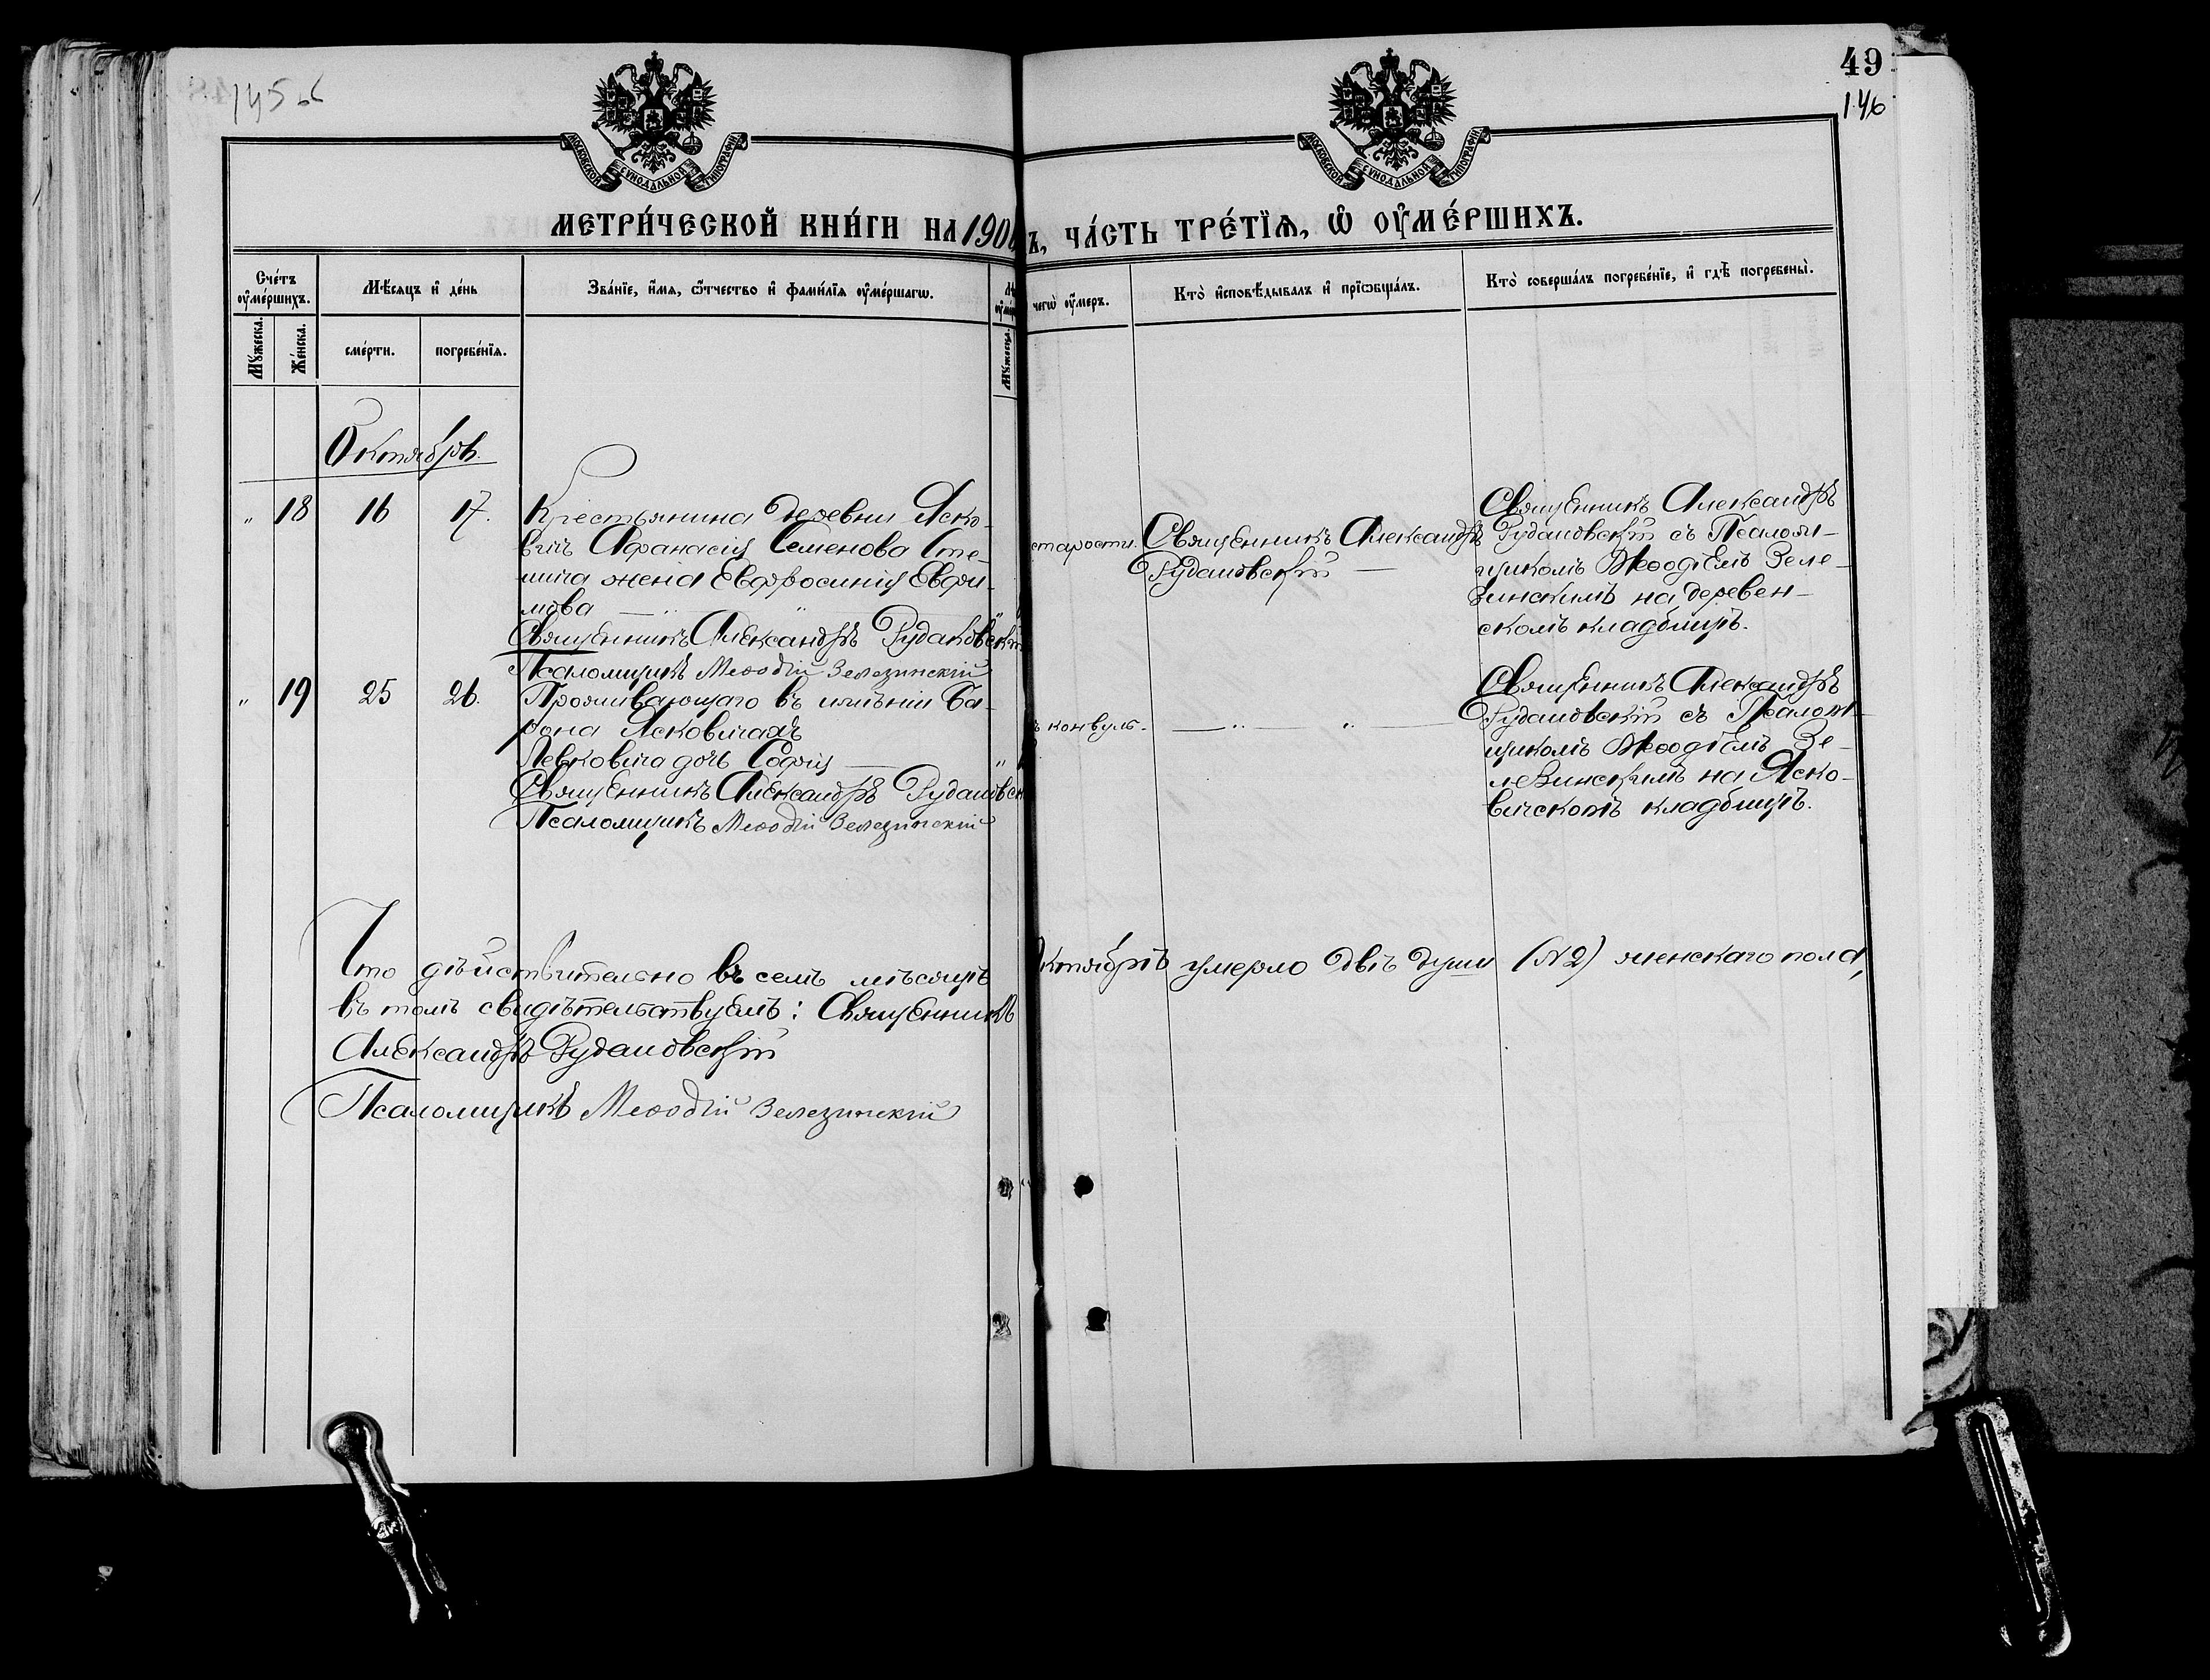 145 об
49
146
МОСКОВСКОЙ СУНОДАЛЬНОЙ ТИПОГРАФІИ
МОСКОВСКОЙ СУНОДАЛЬНОЙ ТИПОГРАФІИ
МЕТРИ́ЧЕСКОЙ КНИ́ГИ НА 190
Ъ, ЧА́СТЬ ТРЕ́ТЇѦ, Ѡ҆ ОУ҆МЕ́РШИХЪ.
Сче́тъ оу҆ме́ршихъ.
Мѣ́сяцъ и҆ де́нь
Зва́нїе, и҆́мя, ѻ҆́тчество и҆ фами́лїя оу҆ме́ршагѡ.
чегѡ̀ оу҆́меръ.
Кто̀ и҆сповѣ́дывалъ и҆ прїѡбща́лъ.
Кто̀ соверша́лъ погребе́нїе, и҆ гдѣ̀ погребены̀.
Мꙋ́жеска.
Же́нска.
сме́рти.
погребе́нїя.
Мꙋ́жеска.
Октябрь.
" 18 16 17. Крестьянина деревни Яско-
вичъ Афанасія Семенова Сте-
жена Евфросинія Евфи-
мова — " "
Священникъ Александръ Рудаковскі
Псаломщикъ Меѳодій Зелезинскій
старости. Священникъ Александръ
Рудаковскій —
Священникъ Александръ
Рудаковскій съ Псалом-
щикомъ Меѳодіемъ Зеле-
зинскимъ на деревен-
скомъ кладбищѣ.
" 19 25 26. Проживающаго въ имѣніи Ба-
рона Ясковичахъ
Левковича дочь Софія — "
Священникъ Александръ Рудаковск
Псаломщикъ Меѳодій Зелезинскій
ъ конвуль. — " — " —
Священникъ Александръ
Рудаковскій съ Псалом-
щикомъ Меѳодіемъ Зе-
лезинскимъ на Яско-
вичскомъ кладбищѣ.
Что дѣйствительно въ семъ мѣсяцѣ Октябрѣ умерло двѣ души (№ 2) женскаго пола,
въ томъ свидѣтельствуемъ: Священникъ
Александръ Рудаковскій
Псаломщикъ Меѳодій Зелезинскій